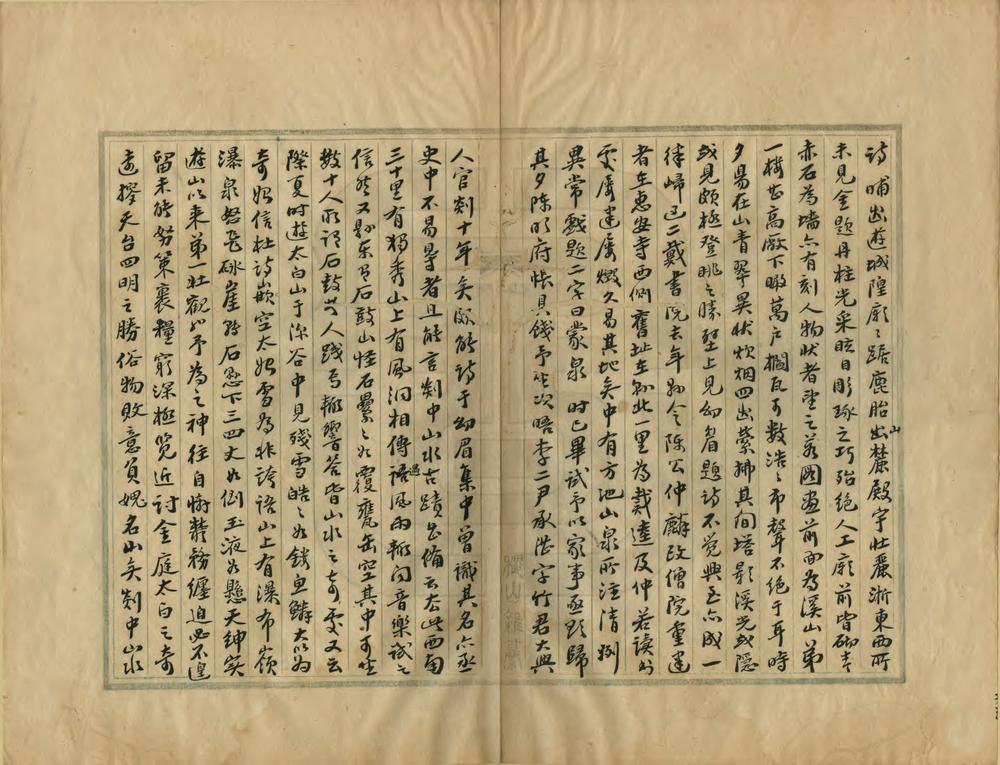 詩晡出遊城隍廟々踞鹿胎山出麓殿宇壯麗浙東西所
未見金題丹柱光采眩目彫琢之巧殆絕人工廟前皆砌青
赤石為墻亦有刻人物狀者望之若圖畫前面為溪山第
一樓甚高敞下瞰萬户櫩瓦可數浩々市聲不絕于耳時
夕易在山青翠異狀炊烟四出縈拂其間塔影溪光或隱
或見頗極登眺之勝壁上見幼眉題詩不覺興至亦成一
律歸已二戴書院去年剡令陳公仲麟改僧院重建
者在惠安寺西側舊址在剡北一里為戴逵及仲若讀書
處屢建屢燬久易其地矣中有方池山泉所注清冽
異常戲題二字曰蒙泉時已畢試予以家事亟欲歸
其夕陳明府悵具餞予坐次晤李二尹承湛字竹君大興
人官剡十年矣頗能詩于幼眉集中曾識其名亦丞
史中不易得者且能言剡中山水古蹟甚備云在此西南
三十里有獨秀山上有風洞相傳語遇風雨輒聞音樂試之
信然又縣東有石鼓山怪石纍々如覆甕缶空其中可坐
數十人所謂石鼓也人踐焉輒響答皆山水之奇處又云
際夏時遊太白山于深谷中見殘雪皓々如銀魚鱗大以為
奇始信杜詩嵌空太始雪為非誇語山上有瀑布嶺
瀑泉怒飛砯崖轉石懸下三四丈如倒玉液如懸天紳實
遊山以來第一壯觀以予為之神往自悔業務纏迫必不遑
留未能努策裹糧窮深極覽近討金庭太白之奇
遠擢天台四明之勝俗物敗意負媿名山矣剡中山水